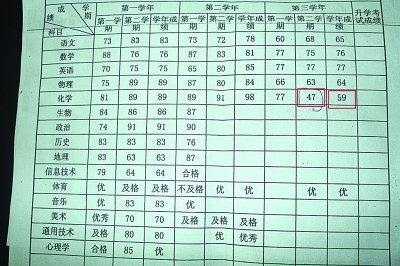 成绩 学期 第一学年 第二学年 第三学年 升学考试成绩
科目 第一学期 第二学期 学年成绩 第一学期 第二学期 学年成绩 第一学期 第二学期 学年成绩
语文 73 83 83 73 72 78 60 68 65
数学 88 76 76 87 83 81 77 75 76
英语 70 75 75 65 78 78 77 77 77
物理 75 89 89 87 80 84 66 63 64
化学 81 89 89 89 91 98 77 47 59
生物 84 86 86 87
政治 74 91 91 90
历史 83 83 83 76
地理 83 63 63 87
信息技术 79 64 64 合格
体育 优 及格 及格 不及格 优 优 优 优
音乐 优 83 83 优
美术 优秀 70 70 及格 及格 及格
通用技术 及格 80 80 优 优秀
心理学 合格 85 优